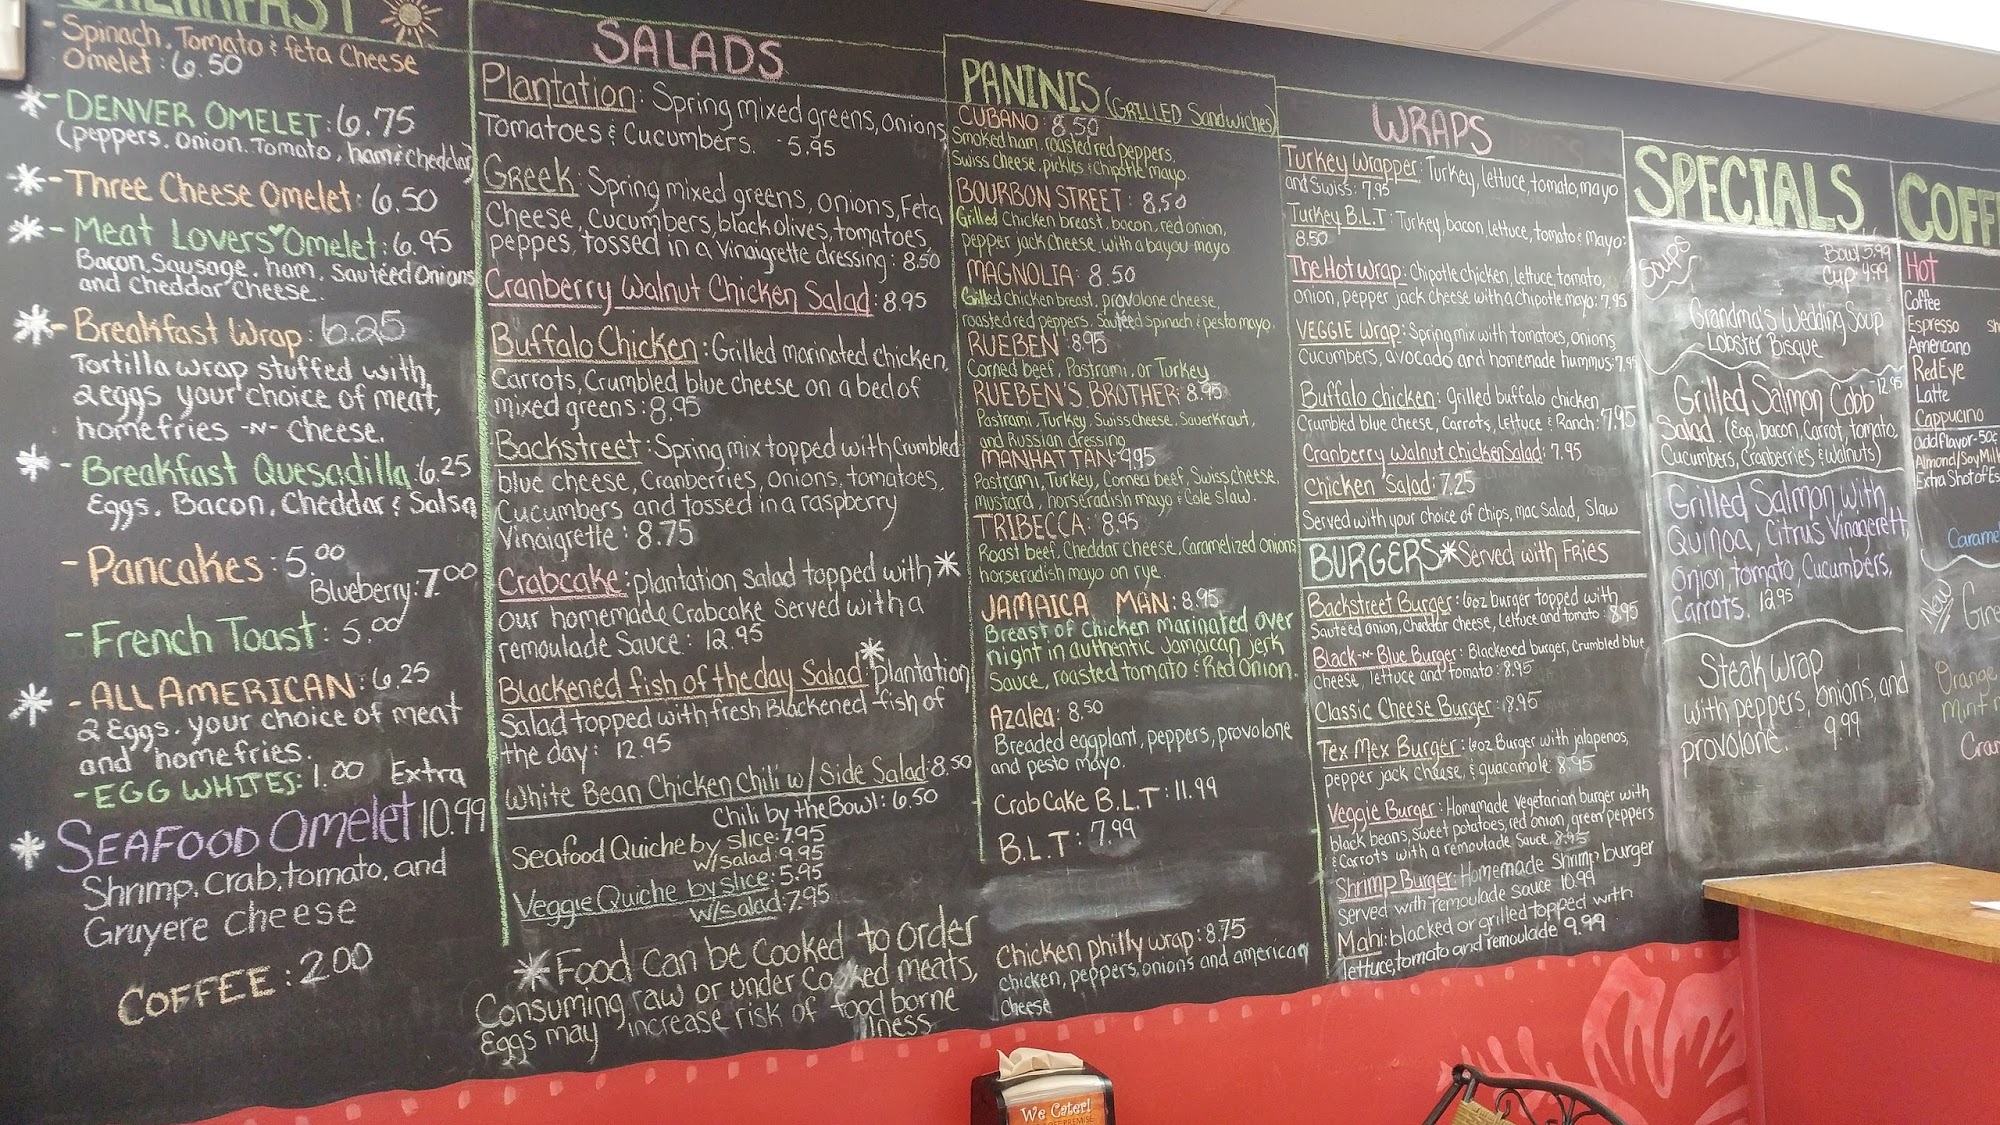 BREAKFAST
- Spinach, Tomato & feta Cheese
Omelet: 6.50
* - DENVER OMELET: 6.75
(peppers, onion, Tomato, ham & cheddar)
* - Three Cheese Omelet: 6.50
* - Meat Lovers Omelet: 6.95
Bacon, Sausage, ham, sautéed Onions
and Cheddar Cheese.
* - Breakfast Wrap: 6.25
Tortilla wrap stuffed with
2 eggs your choice of meat,
homefries -N- cheese.
* - Breakfast Quesadilla: 6.25
Eggs, Bacon, Cheddar & Salsa
- Pancakes: 5.00
Blueberry: 7.00
- French Toast: 5.00
* - ALL AMERICAN: 6.25
2 Eggs, your choice of meat
and homefries.
- EGG WHITES: 1.00 Extra
* SEAFOOD Omelet 10.99
Shrimp, Crab, tomato, and
Gruyere cheese
COFFEE: 2.00
SALADS
Plantation: Spring mixed greens, onions,
Tomatoes & Cucumbers. - 5.95
Greek: Spring mixed greens, onions, Feta
Cheese, Cucumbers, black olives, tomatoes,
peppes, tossed in a Vinaigrette dressing: 8.50
Cranberry Walnut Chicken Salad: 8.95
Buffalo Chicken: Grilled marinated chicken,
Carrots, Crumbled blue cheese on a bed of
mixed greens: 8.95
Backstreet: Spring mix topped with Crumbled
blue cheese, Cranberries, onions, tomatoes,
Cucumbers and tossed in a raspberry
Vinaigrette: 8.75
Crabcake: plantation salad topped with *
our homemade Crabcake served with a
remoulade Sauce: 12.95
Blackened fish of the day Salad: * plantation
Salad topped with fresh Blackened fish of
the day: 12.95
White Bean Chicken Chili w/ Side Salad: 8.50
Chili by the Bowl: 6.50
Seafood Quiche by slice: 7.95
w/salad: 9.95
Veggie Quiche by slice: 5.95
w/salad: 7.95
* Food can be cooked to order
Consuming raw or under cooked meats,
Eggs may increase risk of food borne
lness
PANINIS (GRILLED Sandwiches)
CUBANO: 8.50
Smoked ham, roasted red peppers,
Swiss cheese, pickles & chipotle mayo.
BOURBON STREET: 8.50
Grilled Chicken breast, bacon, red onion,
pepper jack cheese with a bayou mayo
MAGNOLIA: 8.50
Grilled chicken breast, provolone cheese,
roasted red peppers, Sauteed spinach & pesto mayo.
RUEBEN: 8.95
Corned beef, Pastrami, or Turkey
RUEBEN'S BROTHER: 8.95
Pastrami, Turkey, Swiss cheese, Sauerkraut,
and Russian dressing
MANHATTAN: 9.95
Pastrami, Turkey, Corned beef, Swiss cheese,
mustard, horseradish mayo & Cole slaw.
TRIBECCA: 8.95
Roast beef, Cheddar cheese, Caramelized onions
horseradish mayo on rye.
JAMAICA MAN: 8.95
Breast of chicken marinated over
night in authentic Jamaican jerk
Sauce, roasted tomato & Red Onion.
Azalea: 8.50
Breaded eggplant, peppers, provolone
and pesto mayo.
Crab Cake B.L.T: 11.99
B.L.T: 7.99
Chicken philly wrap: 8.75
chicken, peppers, onions and american
Cheese
WRAPS
Turkey Wrapper: Turkey, lettuce, tomato, mayo
and Swiss: 7.95
Turkey B.L.T: Turkey, bacon, lettuce, tomato & Mayo:
8.50
The Hot Wrap: Chipotle chicken, lettuce, tomato,
onion, pepper jack cheese with a chipotle mayo: 7.95
VEGGIE Wrap: Spring mix with tomatoes, onions,
Cucumbers, avocado and homemade hummus: 7.95
Buffalo chicken: grilled buffalo chicken
Crumbled blue cheese, Carrots, lettuce & Ranch: 7.95
Cranberry walnut chicken Salad: 7.95
Chicken Salad: 7.25
Served with your choice of chips, mac salad, slaw
BURGERS * Served with Fries
Backstreet Burger: 6oz burger topped with
Sauteed onion, Cheddar cheese, Lettuce and tomato: 8.95
Black-N-Blue Burger: Blackened burger, Crumbled blue
cheese, lettuce and tomato: 8.95
Classic Cheese Burger: 8.95
Tex Mex Burger: 6oz Burger with jalapenos,
pepper jack cheese, & guacamole: 8.95
Veggie Burger: Homemade Vegetarian burger with
black beans, sweet potatoes, red onion, green peppers
& Carrots with a remoulade Sauce. 8.95
Shrimp Burger: Homemade Shrimp burger
served with remoulade sauce 10.99
Mahi: blacked or grilled topped with
lettuce, tomato and remoulade 9.99
SPECIALS
Soups
Bowl 5.99
Cup 4.99
Grandma's Wedding Soup
Lobster Bisque
Grilled Salmon Cobb - 12.95
Salad (Egg, bacon, Carrot, tomato,
Cucumbers, Cranberries, & walnuts)
Grilled Salmon with
Quinoa, Citrus Vinagerett,
onion, tomato, Cucumbers,
Carrots. 12.95
Steak Wrap
with peppers, onions, and
provolone. 9.99
COFF
HOT
Coffee
Espresso Sh
Americano
Red Eye
Latte
Cappucino
add flavor - 50¢
Almond/Soy Milk
Extra Shot of Es
Carame
New
Gre
Orange
Mint
Cran
We Cater!